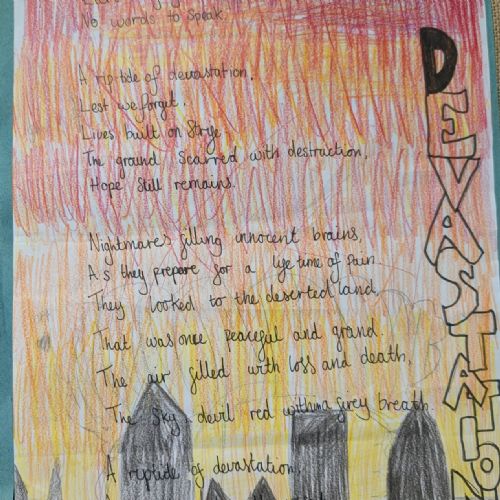 No words to speak.
A riptide of devastation,
Lest we forget.
Lives built on Strife,
The ground Scarred with destruction,
Hope Still remains.
Nightmares filling innocent brains,
As they prepare for a lifetime of Pain
They looked to the deserted land,
That was once peaceful and grand.
The air filled with loss and death,
The Sky devil red with a firey breath.
A riptide of devastation,
DEVASTATIO